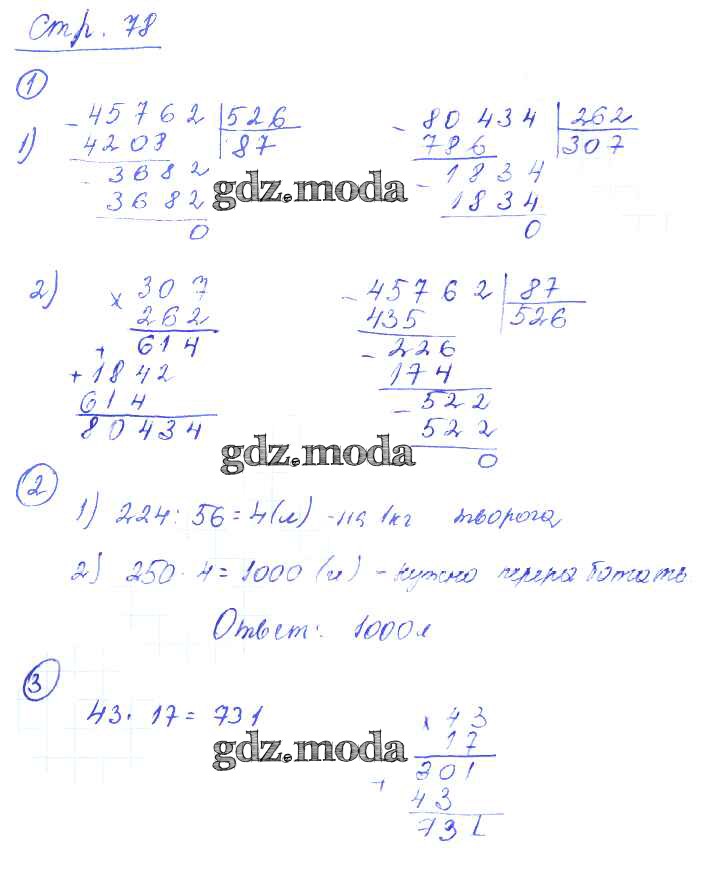 Стр. 78
1
1) - 45762 | 526
4208 | 87
- 3682
3682
0
- 80434 | 262
786 | 307
- 1834
1834
0
gdz.moda
2) × 307
262
+ 614
+ 1842
614
80434
- 45762 | 87
435 | 526
- 226
174
- 522
522
0
gdz.moda
2
1) 224 : 56 = 4 (л) - на 1кг творога
2) 250 · 4 = 1000 (л) - нужно переработать
Ответ: 1000 л
3
43 · 17 = 731
× 43
17
+ 301
43
731
gdz.moda